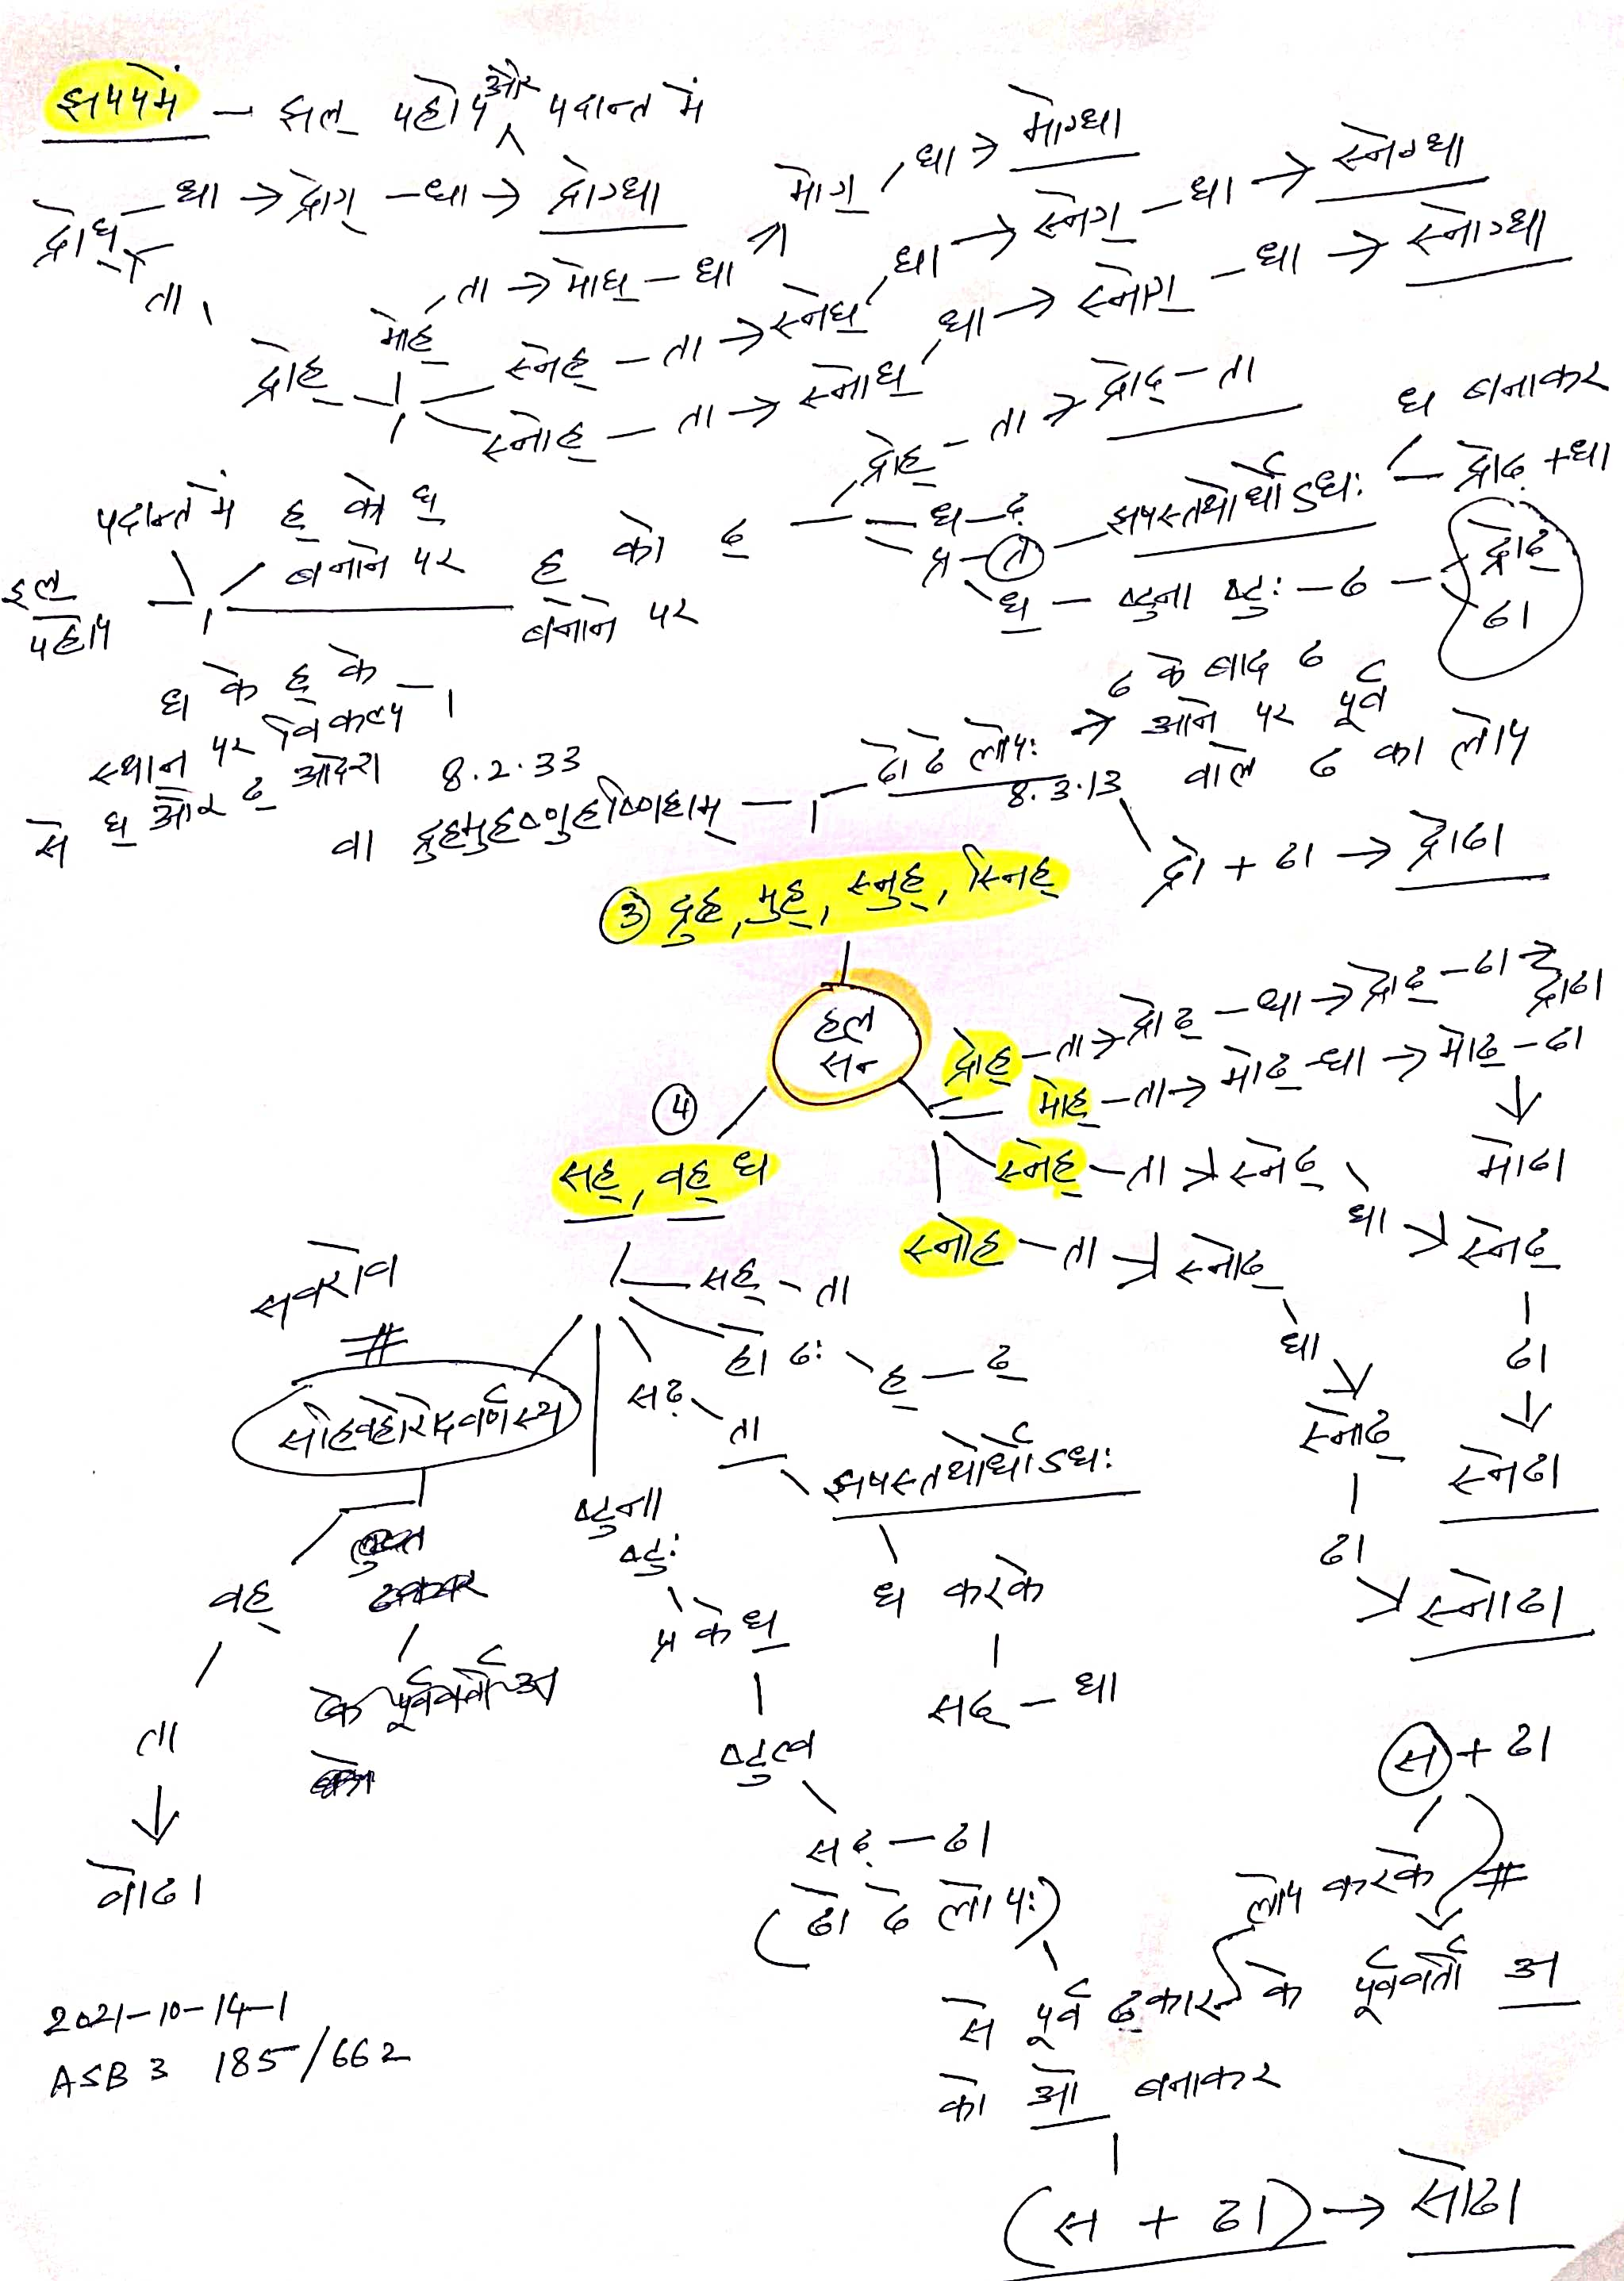 झपपमें — झल् परे होप और पदान्त में
द्रोघ् — धा → द्रोग् — धा → द्रोग्धा
ता
मोह् ता → मोघ् — धा → मोग् धा → मोग्धा
द्रोह्
स्नेह् — ता → स्नेघ् धा → स्नेग् — धा → स्नेग्धा
स्नोह् — ता → स्नोघ् धा → स्नोग् — धा → स्नोग्धा
पदान्त में ह् को घ्
बनाने पर
ह् को ढ्
बनाने पर
द्रोह् — ता → द्रोढ् — ता
ध बनाकर
झषस्तथोर्धोऽधः — द्रोढ् + धा
त
ध् — ष्टुना ष्टुः — ढ — द्रोढ्
ढा
घ के ह् के
स्थान पर विकल्प
से घ् और ढ् आदेश 8.2.33
वा द्रुहमुहष्णुहष्णिहाम्
ढो ढे लोपः → ढ के बाद ढ
8.3.13
आने पर पूर्व
वाले ढ का लोप
द्रो + ढा → द्रोढा
③ द्रुह्, मुह्, स्नुह्, स्निह्
हल्
सन्
द्रोह् — ता → द्रोढ् — धा → द्रोढ् — ढा → द्रोढा
मोह् — ता → मोढ् — धा → मोढ् — ढा
↓
मोढा
स्नेह् — ता → स्नेढ्
धा → स्नेढ्
ढा
↓
स्नेढा
स्नोह — ता → स्नोढ्
धा
स्नोढ्
ढा
→ स्नोढा
④
सह्, वह् ध
सह् — ता
हो ढः ह — ढ्
सढ् ता
झषस्तथोर्धोऽधः
ध करके
सढ् — धा
ष्टुना
ष्टुः
प्र के ध्
ष्टुत्व
सढ् — ढा
(ढो ढे लोपः)
#
सहिवहोरोदवर्णस्य
वह्
ता
↓
वोढा
के पूर्ववर्ती अ
स + ढा
लोप करके #
से पूर्व ढकार के पूर्ववर्ती अ
को ओ बनाकर
(स + ढा) → सोढा
2021-10-14-1
ASB 3 185/662